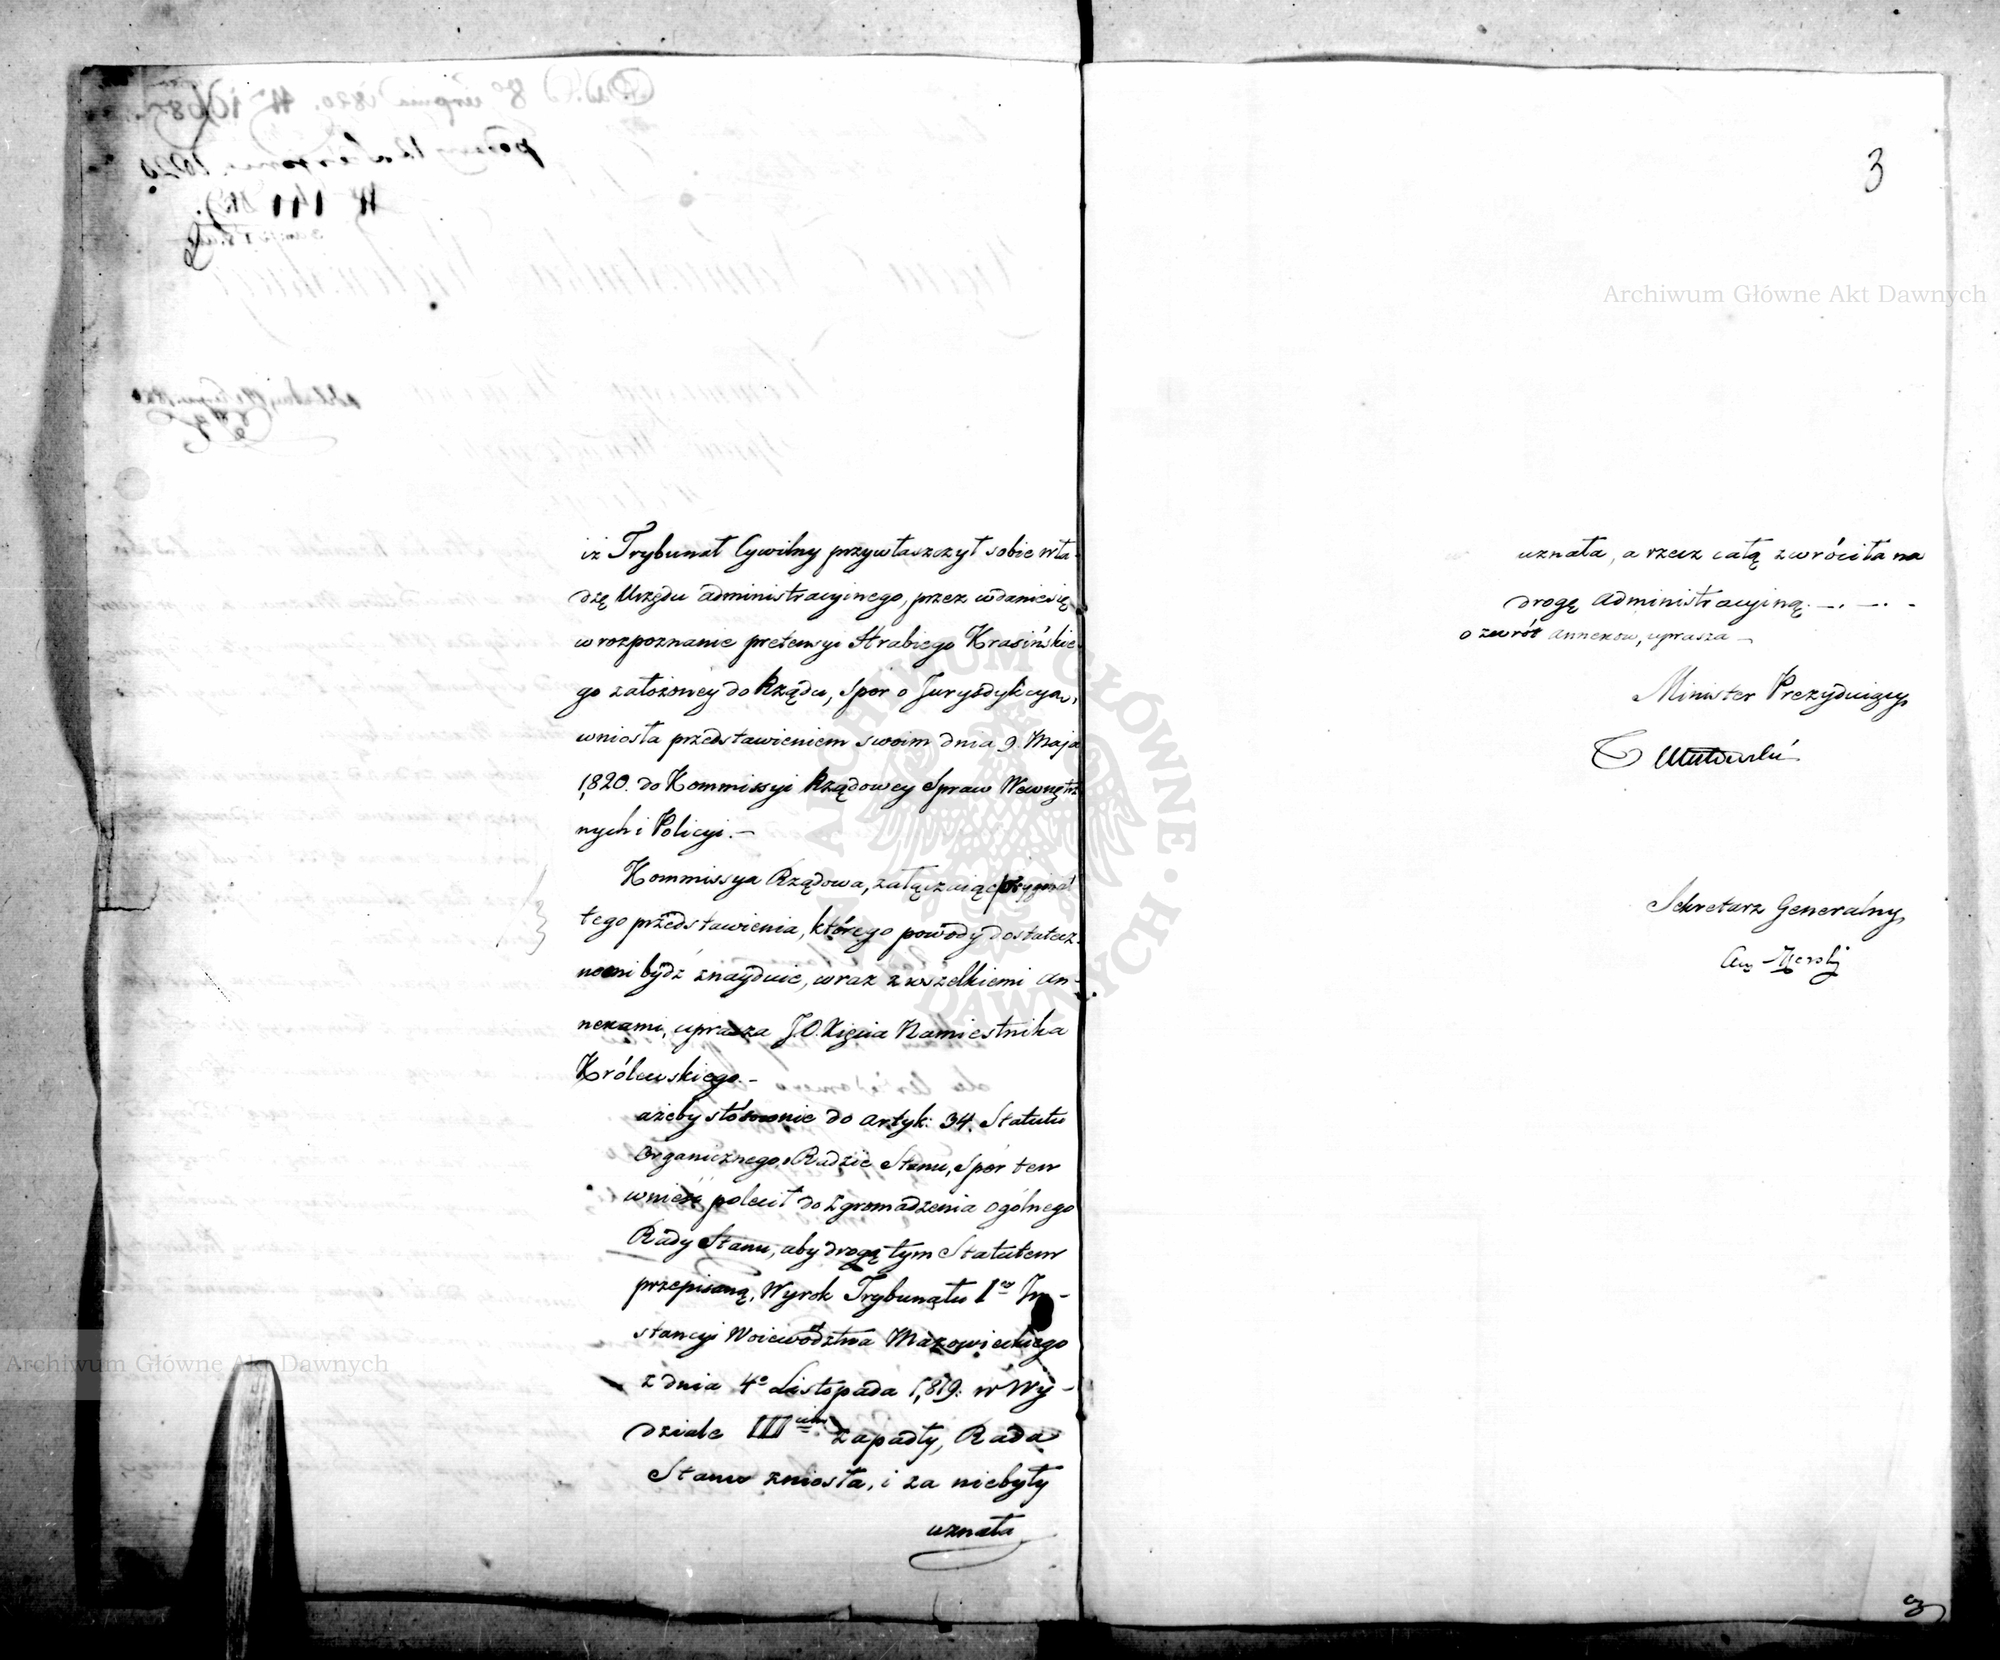 iż Trybunał Cywilny przywłaszczył sobie wła-
dzę Urzędu administracyinego, przez wdanie się
w rozpoznanie pretensyi Hrabiego Krasińskie-
go założoney do Rządu, Spór o Jurysdykcyą,
wniosła przedstawieniem swoim dnia 9. Maja
1820. do Kommissyi Rządowey Spraw Wewnętrz
nych i Policyi. —
Kommissya Rządowa, załączaiąc oryginał
tego przedstawienia, którego powody dostatecz-
nemi bydź znayduie, wraz z wszelkiemi an-
nexami, uprasza J.O. Xięcia Namiestnika
Królewskiego. —
ażeby stósownie do artyk: 34. Statutu
Organicznego o Radzie Stanu, Spór ten
wnieść polecił do Zgromadzenia ogólnego
Rady Stanu, aby drogą tym Statutem
przepisaną, Wyrok Trybunału 1ey In-
stancyi Woiewództwa Mazowieckiego
z dnia 4o Listopada 1,819. w Wy-
dziale III zapadły, Rada
Stanu zniosła, i za niebyły
uznała
3
uznała, a rzecz całą zwróciła na
drogę administracyiną. —. —. -
o zwrót annexow, uprasza —
Minister Prezyduiący
Sekretarz Generalny
3
Archiwum Główne Akt Dawnych
Archiwum Główne Akt Dawnych
ARCHIWUM GŁÓWNE AKT DAWNYCH